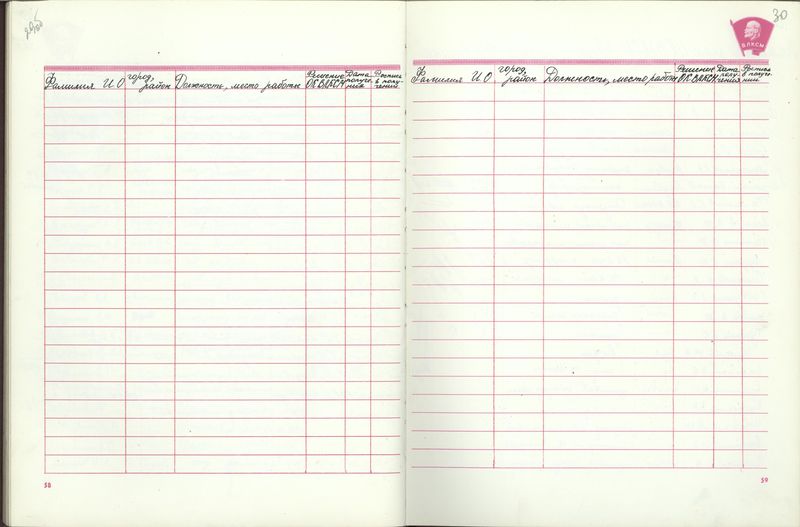 29об
Фамилия И О город, район Должность, место работы Решение ОК ВЛКСМ Дата получения Роспись в получении
58
30
ВЛКСМ
Фамилия И О город, район Должность, место работы Решение ОК ВЛКСМ Дата получения Роспись в получении
59